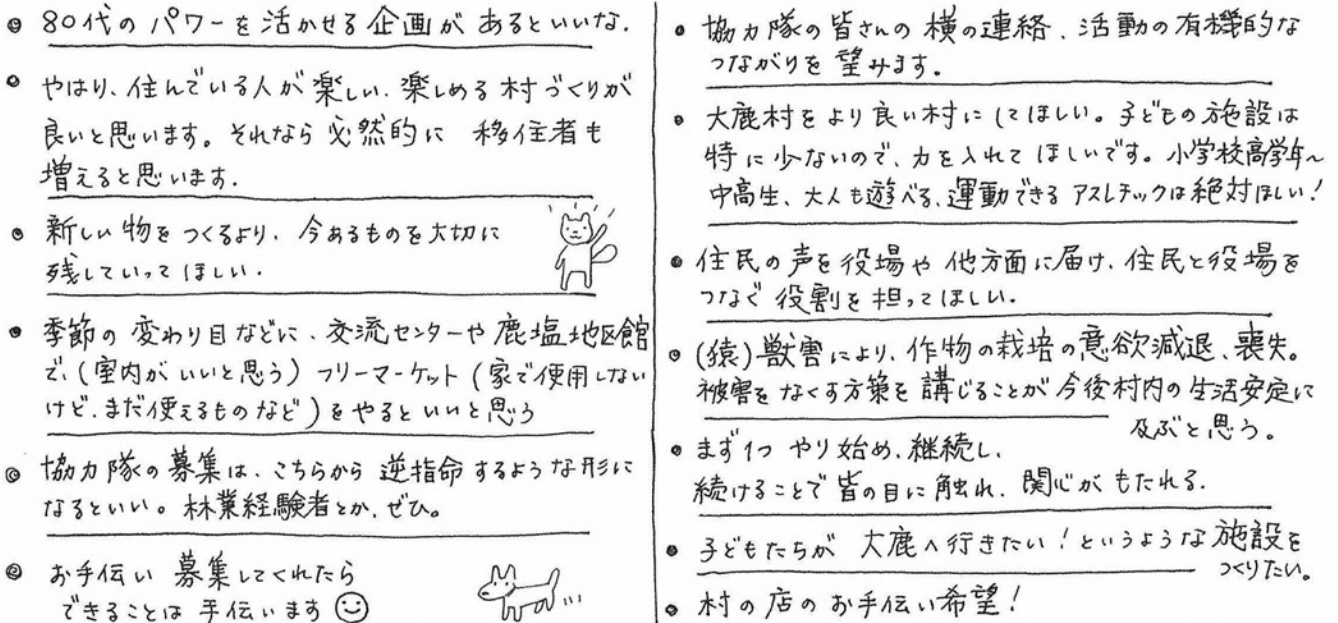 • 80代のパワーを活かせる企画があるといいな.
• やはり、住んでいる人が楽しい、楽しめる村づくりが
良いと思います。それなら必然的に 移住者も
増えると思います.
• 新しい物をつくるより、今あるものを大切に
残していってほしい.
• 季節の変わり目などに、交流センターや鹿塩地区館
で、(室内がいいと思う) フリーマーケット (家で使用しない
けど、まだ使えるものなど) をやるといいと思う
• 協力隊の募集は、こちらから逆指命するような形に
なるといい。林業経験者とか、ぜひ。
• お手伝い 募集してくれたら
できることは 手伝います ☺
• 協力隊の皆さんの横の連絡、活動の有機的な
つながりを望みます。
• 大鹿村をより良い村にしてほしい。子どもの施設は
特に少ないので、力を入れてほしいです。小学校高学年〜
中高生、大人も遊べる、運動できるアスレチックは絶対ほしい!
• 住民の声を役場や他方面に届け、住民と役場を
つなぐ役割を担ってほしい.
• (猿) 獣害により、作物の栽培の意欲減退、喪失。
被害をなくす方策を講じることが今後村内の生活安定に
及ぶと思う。
• まず1つ やり始め、継続し、
続けることで皆の目に触れ、関心がもたれる.
• 子どもたちが 大鹿へ行きたい!というような施設を
つくりたい。
• 村の店のお手伝い希望!